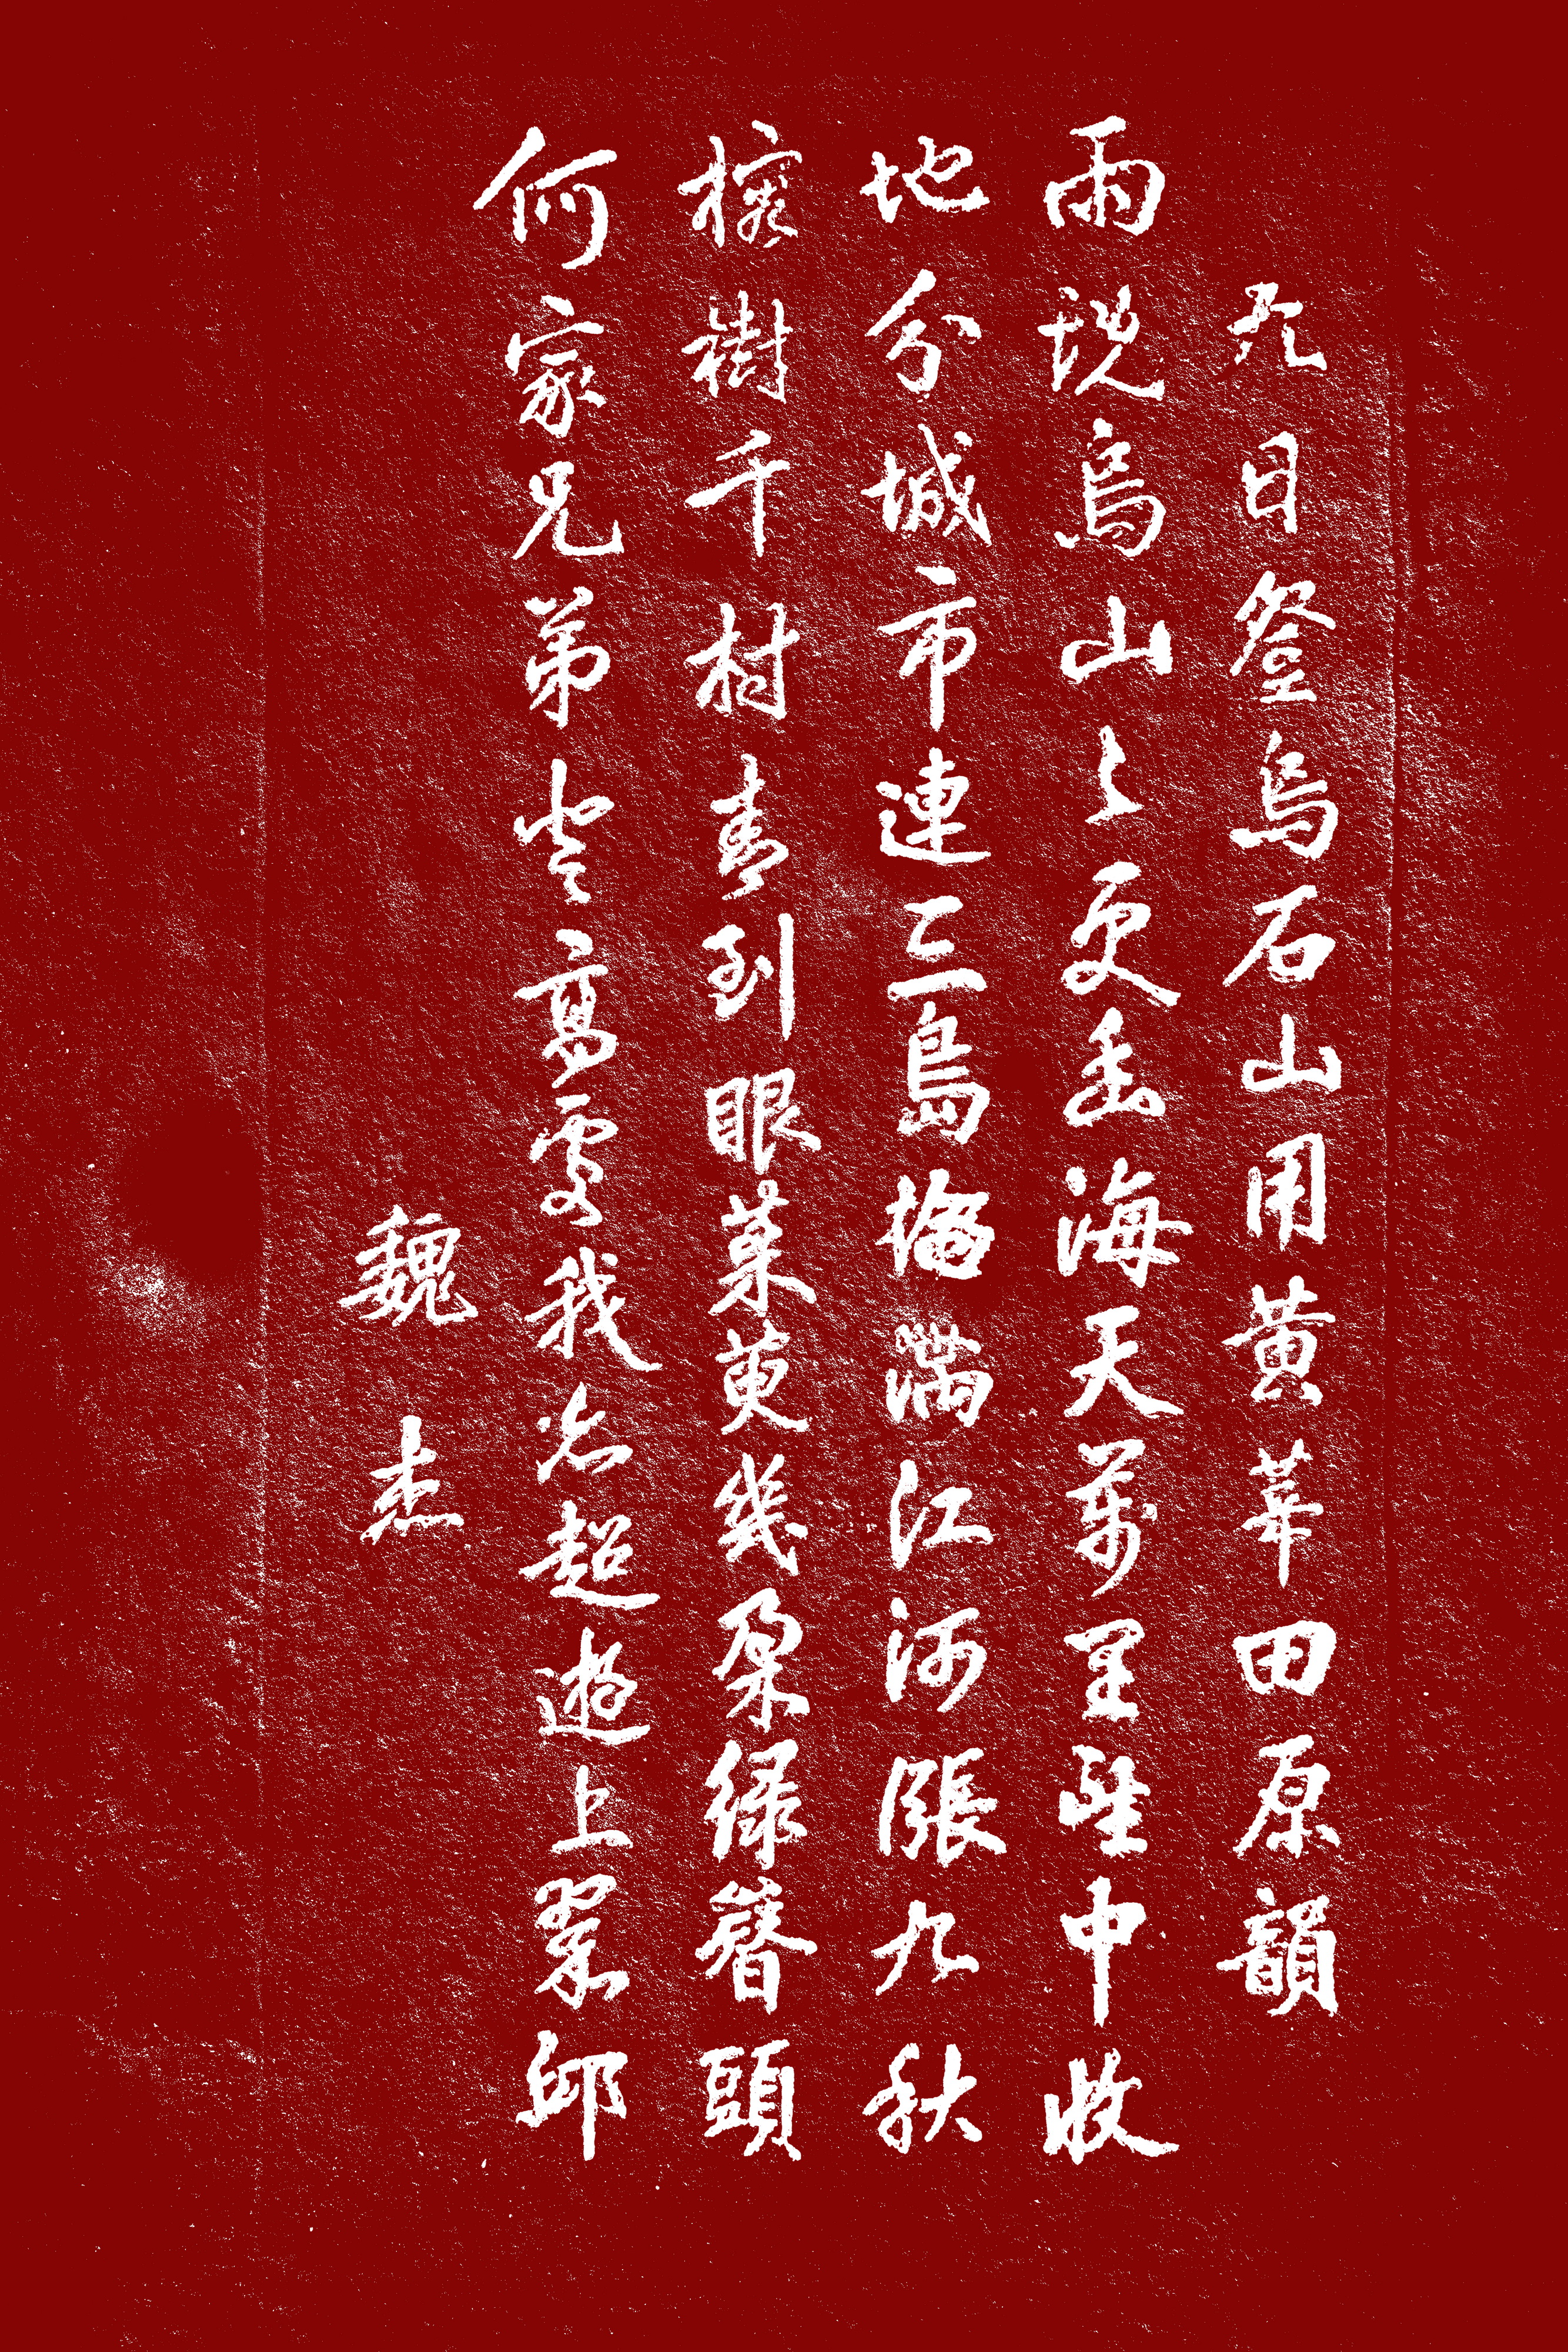 九日登烏石山用黃莘田原韻
雨烏山上更幽海天萬里望中收
地分城市連三島滿江河漲九秋
榕樹千村青到眼茱萸幾朵綠簪頭
何家兄弟高處我亦超遊上翠邱
魏杰